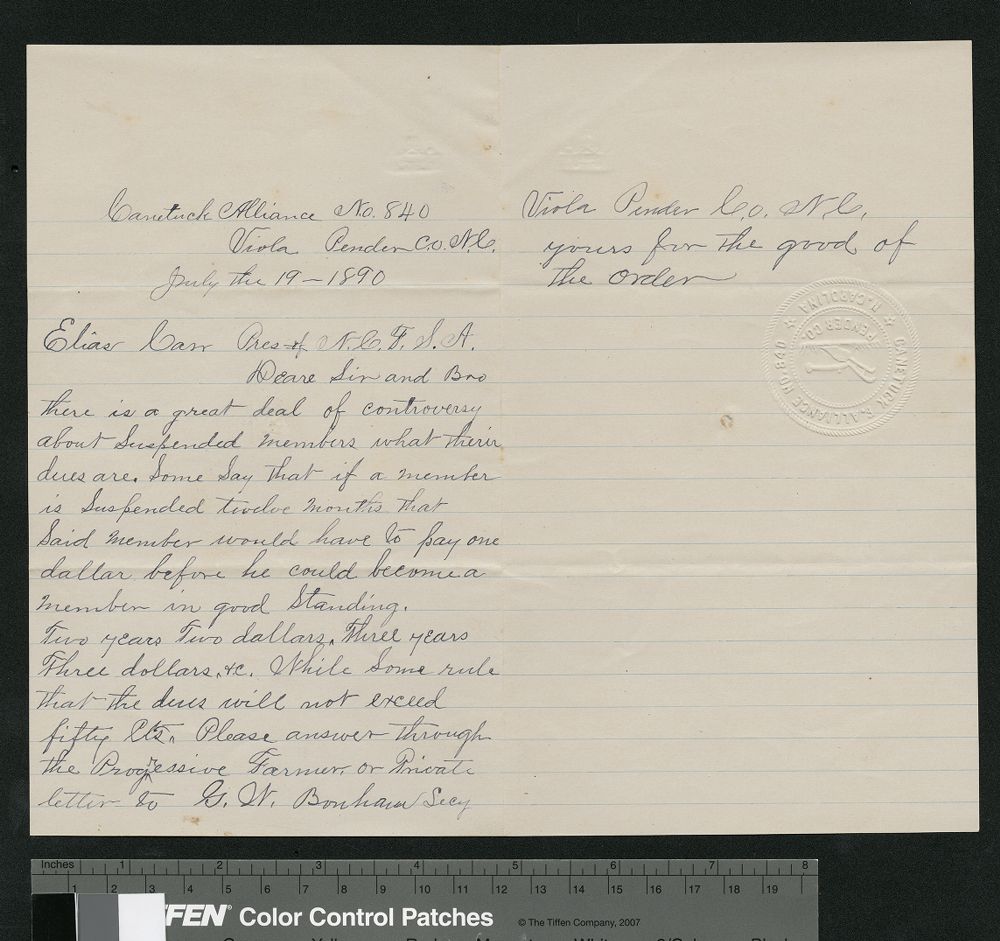 Canetuck Alliance No. 840
Viola Pender C.O. N.C.
July the 19 – 1890
Elias Carr Pres of N.C. F. S. A.
Deare Sir and Bro
there is a great deal of controversy
about Suspended members what their
dues are. Some Say that if a member
is Suspended twelve months that
Said member would have to pay one
dallar before he could become a
member in good Standing.
Two years Two dallars, Three years
Three dollars, &c. While Some rule
that the dues will not exceed
fifty Cts. Please answer through
the Progressive Farmer, or Private
letter to G. W. Bonham Secy
Viola Pender C.O. N.C.
yours for the good of
the order
CANETUCK F. ALLIANCE NO. 840
N. CAROLINA
PENDER CO.
Inches 1 2 3 4 5 6 7 8
1 2 3 4 5 6 7 8 9 10 11 12 13 14 15 16 17 18 19
FFEN® Color Control Patches © The Tiffen Company, 2007